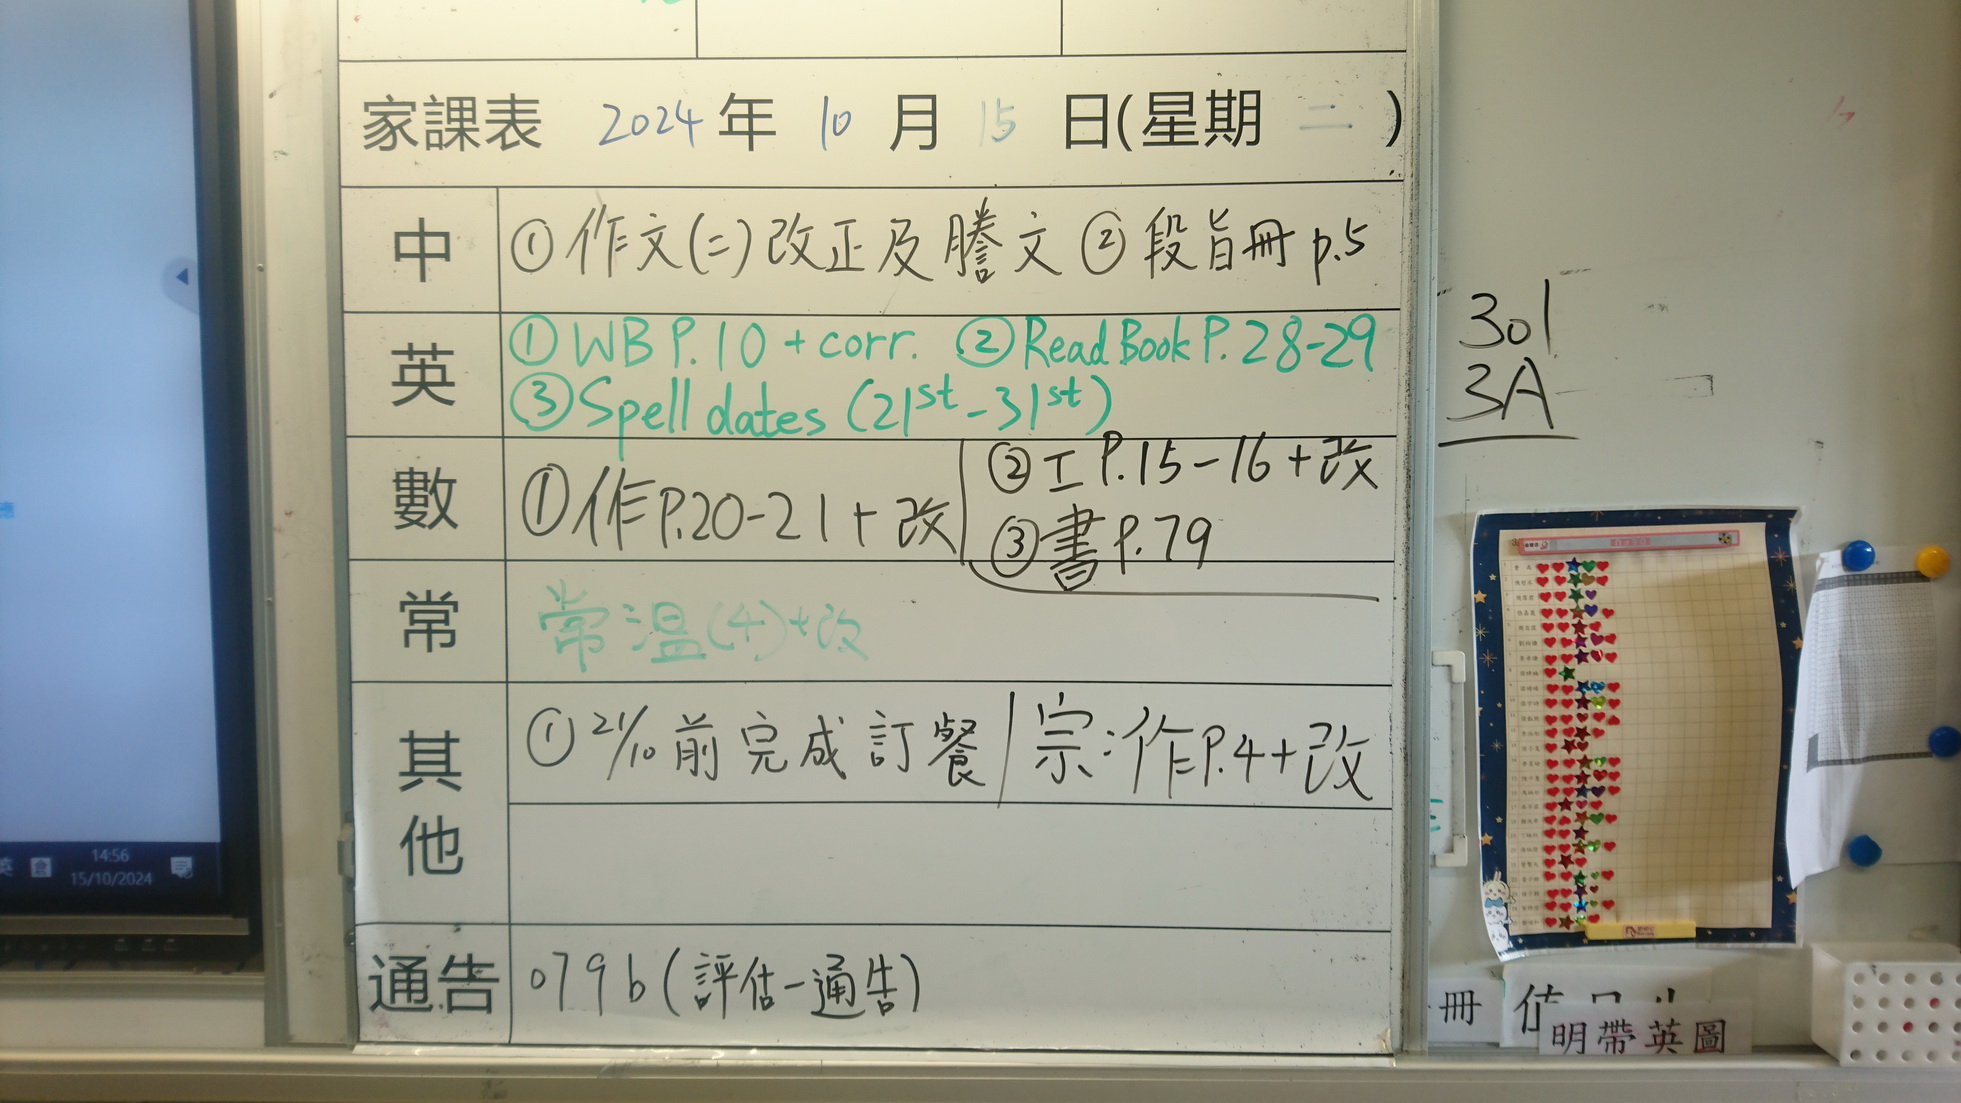 家課表 2024 年 10 月 15 日(星期 二 )
中 ①作文(二)改正及謄文 ②段旨冊 p.5
英 ①WB P.10 + corr. ②Read Book P. 28-29
③Spell dates (21st - 31st)
數 ①作P.20-21 + 改
②工 P.15-16 + 改
③書 P.79
常 常温(4)+改
其他 ①21/10前完成訂餐 / 宗:作P.4 + 改
通告 079b (評估一通告)
301
3A
英
14:56
15/10/2024
冊
明帶英圖